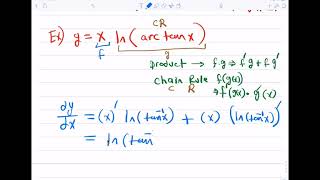 CR
Ex) y = x ln(arc tan x)
f g
product → f·g ⇒ f'g + fg'
Chain Rule f(g(x))
C R ⇒ f'(g(x))·g'(x)
dy/dx = (x)' ln(tan⁻¹x) + (x) (ln(tan⁻¹x))'
= ln(tan⁻